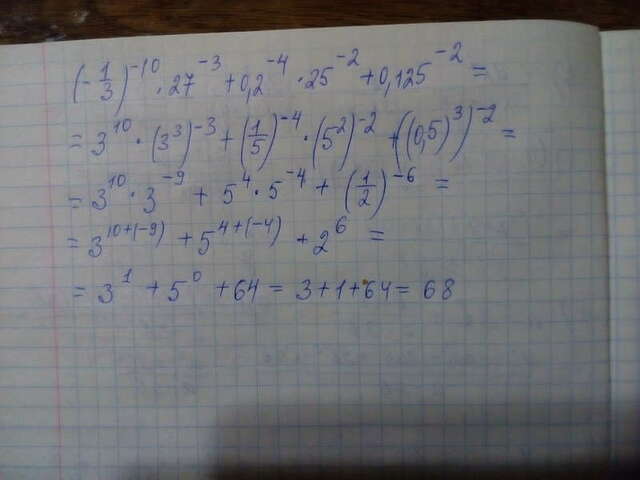 (-1/3)^-10 · 27^-3 + 0,2^-4 · 25^-2 + 0,125^-2 =
= 3^10 · (3^3)^-3 + (1/5)^-4 · (5^2)^-2 + ((0,5)^3)^-2 =
= 3^10 · 3^-9 + 5^4 · 5^-4 + (1/2)^-6 =
= 3^10+(-9) + 5^4+(-4) + 2^6 =
= 3^1 + 5^0 + 64 = 3+1+64 = 68